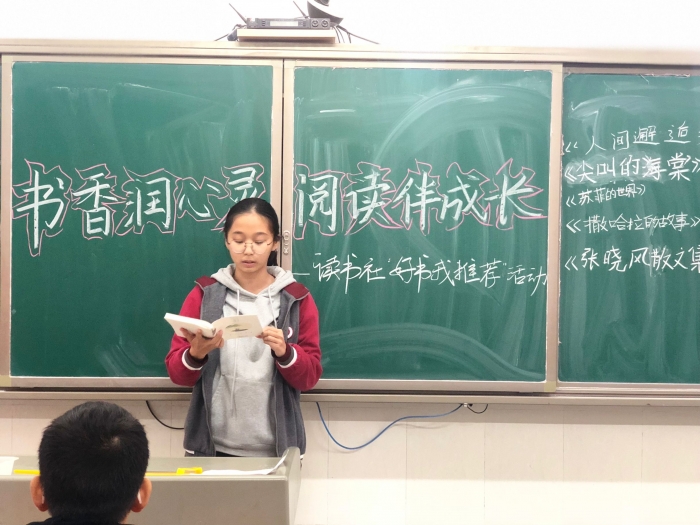 书香润心灵 阅读伴成长
——读书社“好书我推荐”活动
《人间邂逅
《尖叫的海棠》
《苏菲的世界》
《撒哈拉的故事》
《张晓风散文集